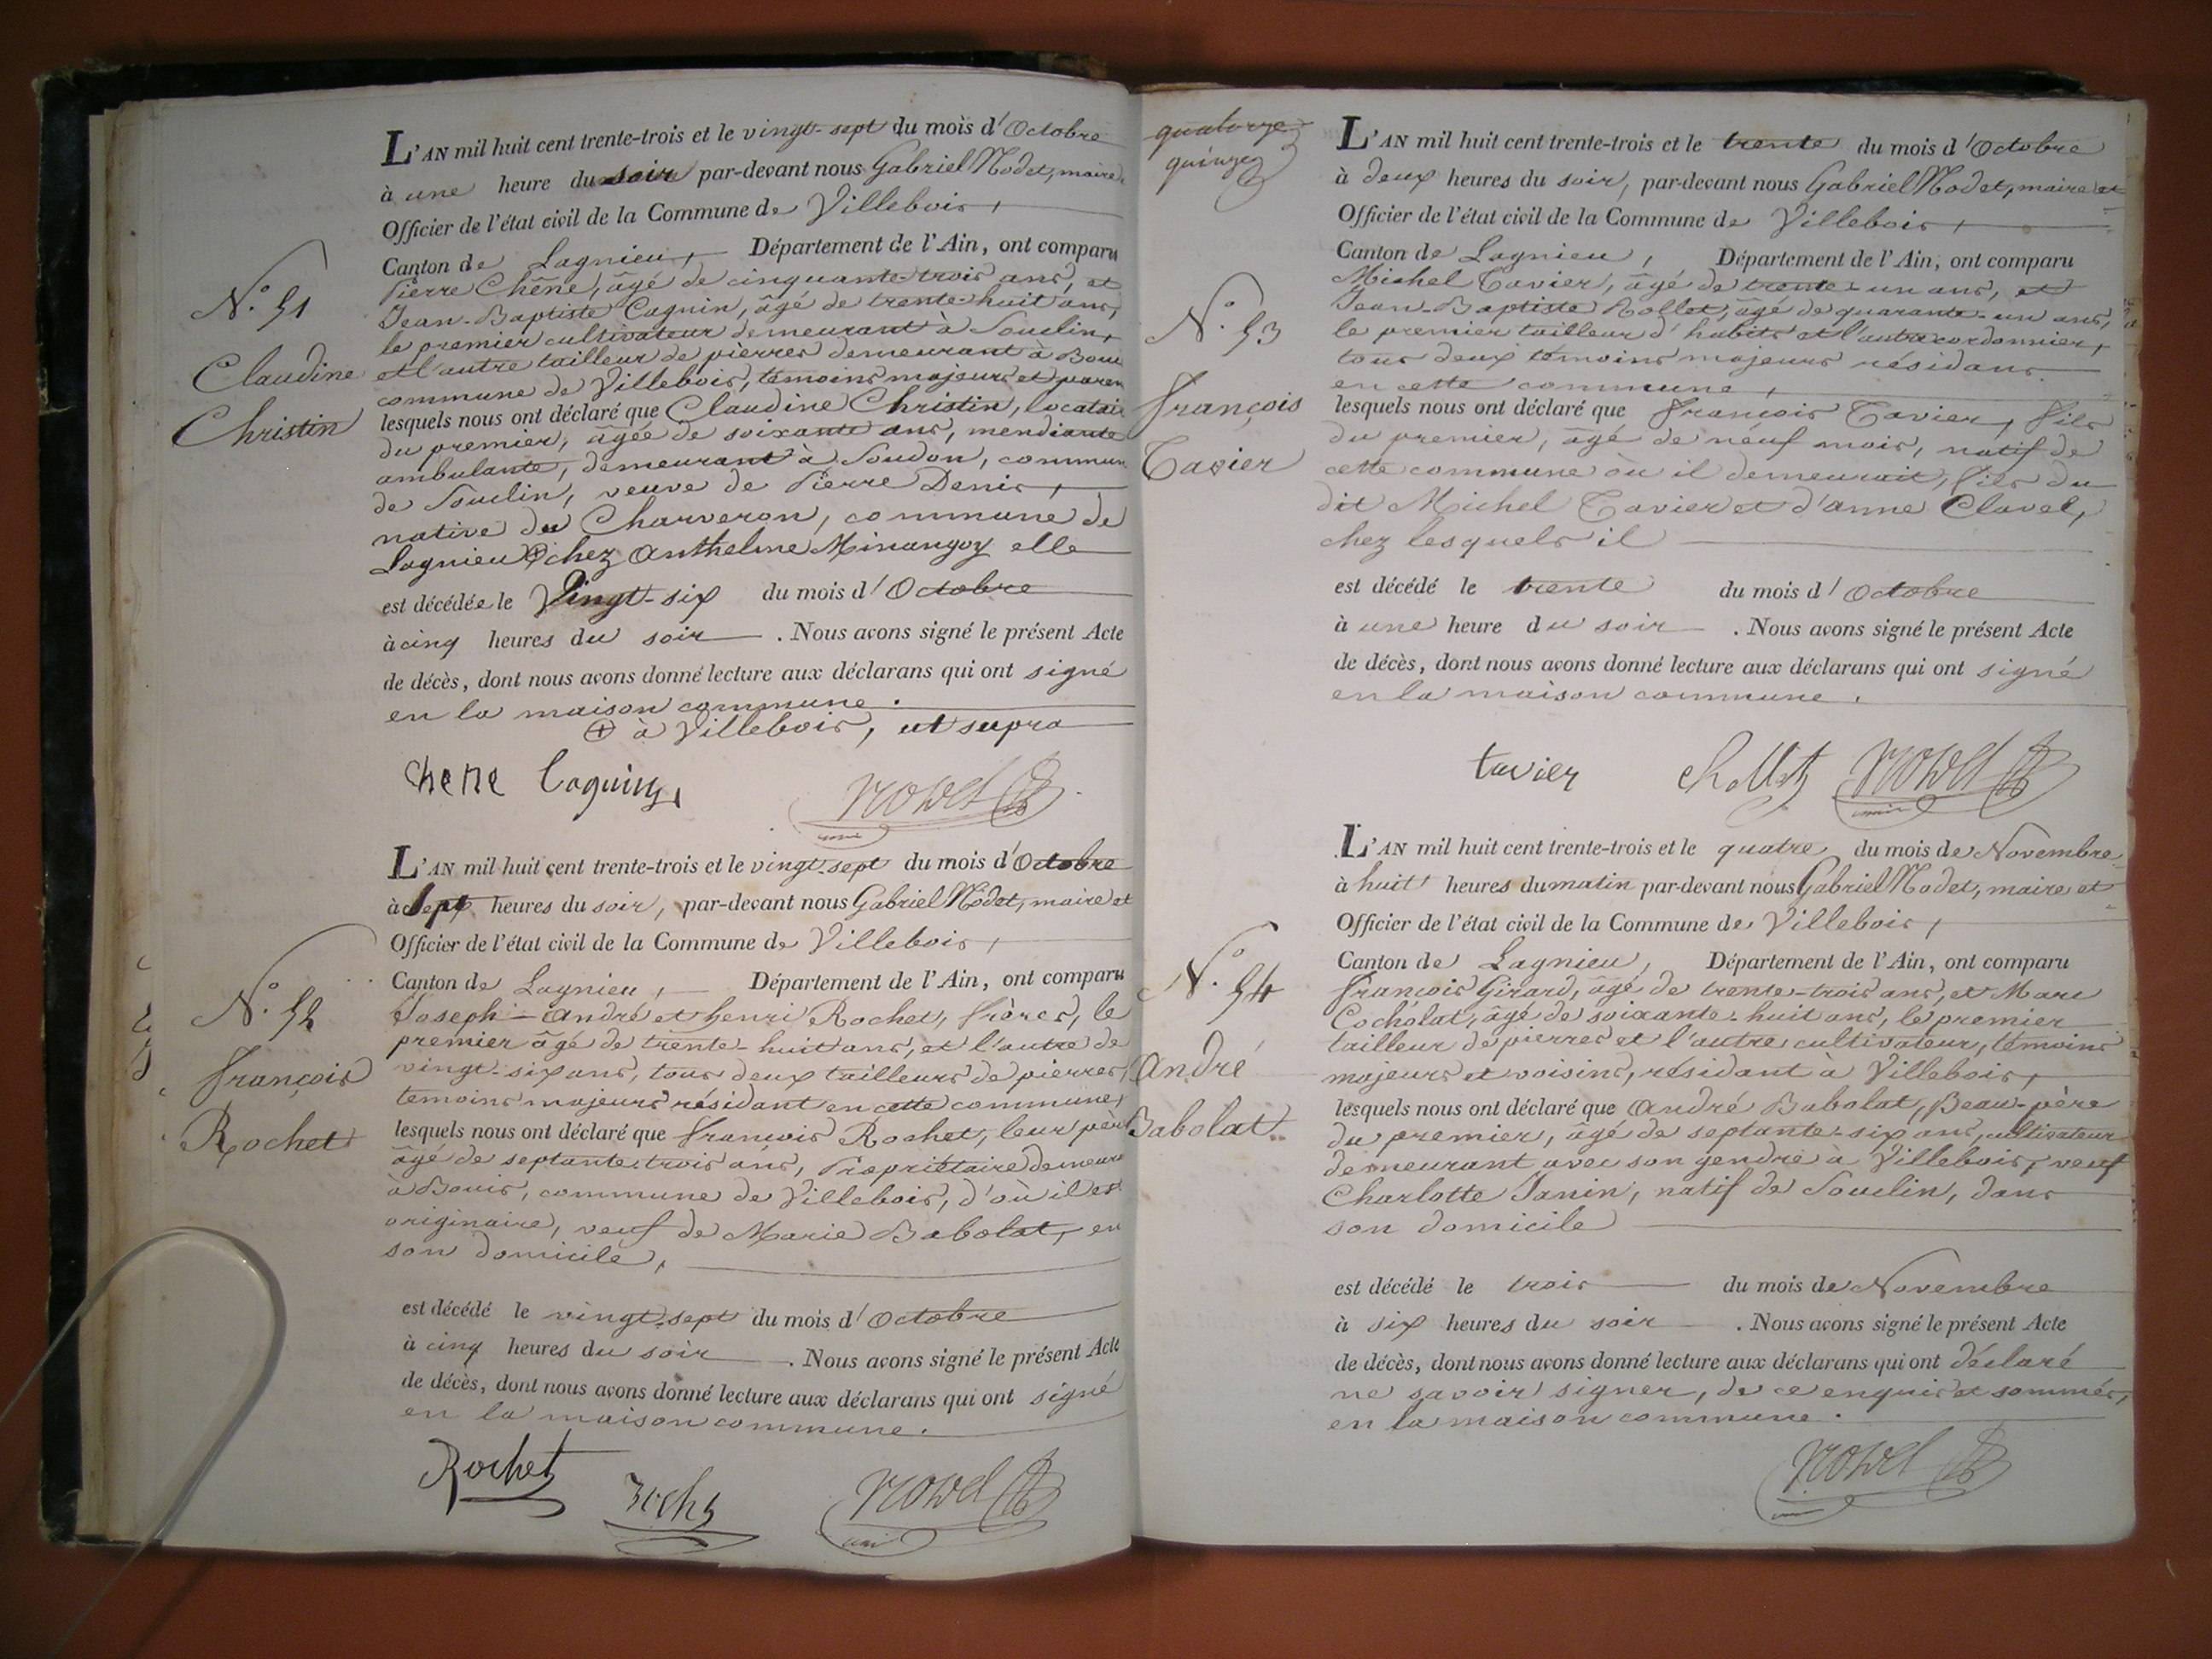 L'AN mil huit cent trente-trois et le vingt-sept du mois d'Octobre
à une heure du soir par-devant nous Gabriel Nodet, maire
Officier de l'état civil de la Commune de Villebois,
Canton de Lagnieu, Département de l'Ain, ont comparu
Pierre Chêne, âgé de cinquante-trois ans, et
Jean-Baptiste Caquin, âgé de trente-huit ans,
le premier cultivateur demeurant à Souclin,
et l'autre tailleur de pierres demeurant à Bouis
commune de Villebois, témoins majeurs et
lesquels nous ont déclaré que Claudine Christin, locataire
du premier, âgée de soixante ans, mendiante
ambulante, demeurant à Soudon, commune
de Souclin, veuve de Pierre Denis,
native de Charveron, commune de
Lagnieu ⊕ chez Anthelme Minangoy elle
est décédée le Vingt-six du mois d'Octobre
à cinq heures du soir. Nous avons signé le présent Acte
de décès, dont nous avons donné lecture aux déclarans qui ont signé
en la maison commune.
⊕ à Villebois, ut supra
N.° 51
Claudine
Christin
chene Caquin Nodet
L'AN mil huit cent trente-trois et le vingt-sept du mois d'Octobre
à Sept heures du soir, par-devant nous Gabriel Nodet, maire et
Officier de l'état civil de la Commune de Villebois,
Canton de Lagnieu, Département de l'Ain, ont comparu
Joseph-André et henri Rochet, frères, le
premier âgé de trente-huit ans, et l'autre de
vingt-six ans, tous deux tailleurs de pierres,
témoins majeurs résidant en cette commune,
lesquels nous ont déclaré que françois Rochet, leur père
âgé de septante-trois ans, Propriétaire demeurant
à Bouis, commune de Villebois, d'où il est
originaire, veuf de Marie Babolat, en
son domicile,
est décédé le vingt-sept du mois d'Octobre
à cinq heures du soir. Nous avons signé le présent Acte
de décès, dont nous avons donné lecture aux déclarans qui ont signé
en la maison commune.
N.° 52
françois
Rochet
Rochet Nodet
quatorze
quinze
L'AN mil huit cent trente-trois et le trente du mois d'Octobre
à deux heures du soir, par-devant nous Gabriel Nodet, maire et
Officier de l'état civil de la Commune de Villebois,
Canton de Lagnieu, Département de l'Ain, ont comparu
Michel Tavier, âgé de trente-un ans, et
Jean-Baptiste Rollet, âgé de quarante-un ans,
le premier tailleur d'habits et l'autre cordonnier,
tous deux témoins majeurs résidans
en cette commune,
lesquels nous ont déclaré que françois Tavier, fils
du premier, âgé de neuf mois, natif de
cette commune où il demeurait, fils du
dit Michel Tavier et d'anne Clavel,
chez lesquels il
est décédé le trente du mois d'Octobre
à une heure du soir. Nous avons signé le présent Acte
de décès, dont nous avons donné lecture aux déclarans qui ont signé
en la maison commune.
N.° 53
françois
Tavier
tavier Nodet
L'AN mil huit cent trente-trois et le quatre du mois de Novembre
à huit heures du matin par-devant nous Gabriel Nodet, maire et
Officier de l'état civil de la Commune de Villebois,
Canton de Lagnieu, Département de l'Ain, ont comparu
françois Girard, âgé de trente-trois ans, et Marc
Cocholat, âgé de soixante-huit ans, le premier
tailleur de pierres et l'autre cultivateur, témoins
majeurs et voisins, résidant à Villebois,
lesquels nous ont déclaré que André Babolat, Beau-père
du premier, âgé de septante-six ans, cultivateur
demeurant avec son gendre à Villebois, veuf
Charlotte Janin, natif de Souclin, dans
son domicile
est décédé le trois du mois de Novembre
à six heures du soir. Nous avons signé le présent Acte
de décès, dont nous avons donné lecture aux déclarans qui ont déclaré
ne savoir signer, de ce enquis et sommés,
en la maison commune.
N.° 54
André
Babolat
Nodet